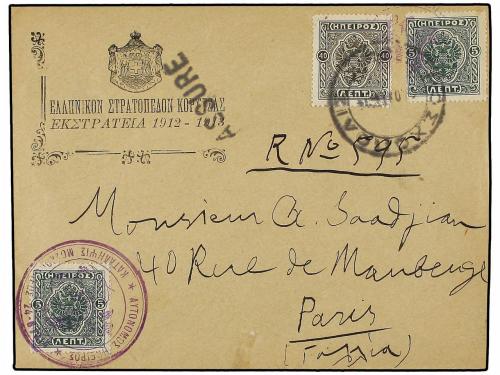 (ΗΠΕΙΡΟΣ) (ΗΠΕΙΡΟΣ)
40 40 5 5
ΛΕΠΤ. ΛΕΠΤ.
ASSURE
ΕΛΛΗΝΙΚΟΝ ΣΤΡΑΤΟΠΕΔΟΝ ΚΟΡΥΤΣΑΣ
ΕΚΣΤΡΑΤΕΙΑ 1912 - 1913
R No 595
Monsieur A. Saadjian
40 Rue de Maubeuge
Paris
(Γαλλία)
ΑΥΤΟΝΟΜΟΣ ΗΠΕΙΡΟΣ
ΚΑΤΑΛΗΨΙΣ
(ΗΠΕΙΡΟΣ)
5 5
ΛΕΠΤ.